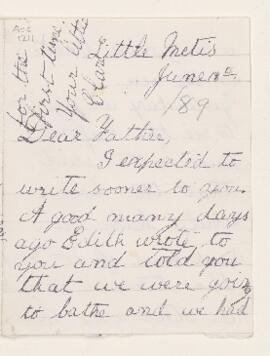 Little Metis
June
/89
Dear Father,
I expected to
write sooner to you.
A good many days
ago Edith wrote to
you and told you
that we were going
to bathe and we had
for the
first time.
Your little
Clare